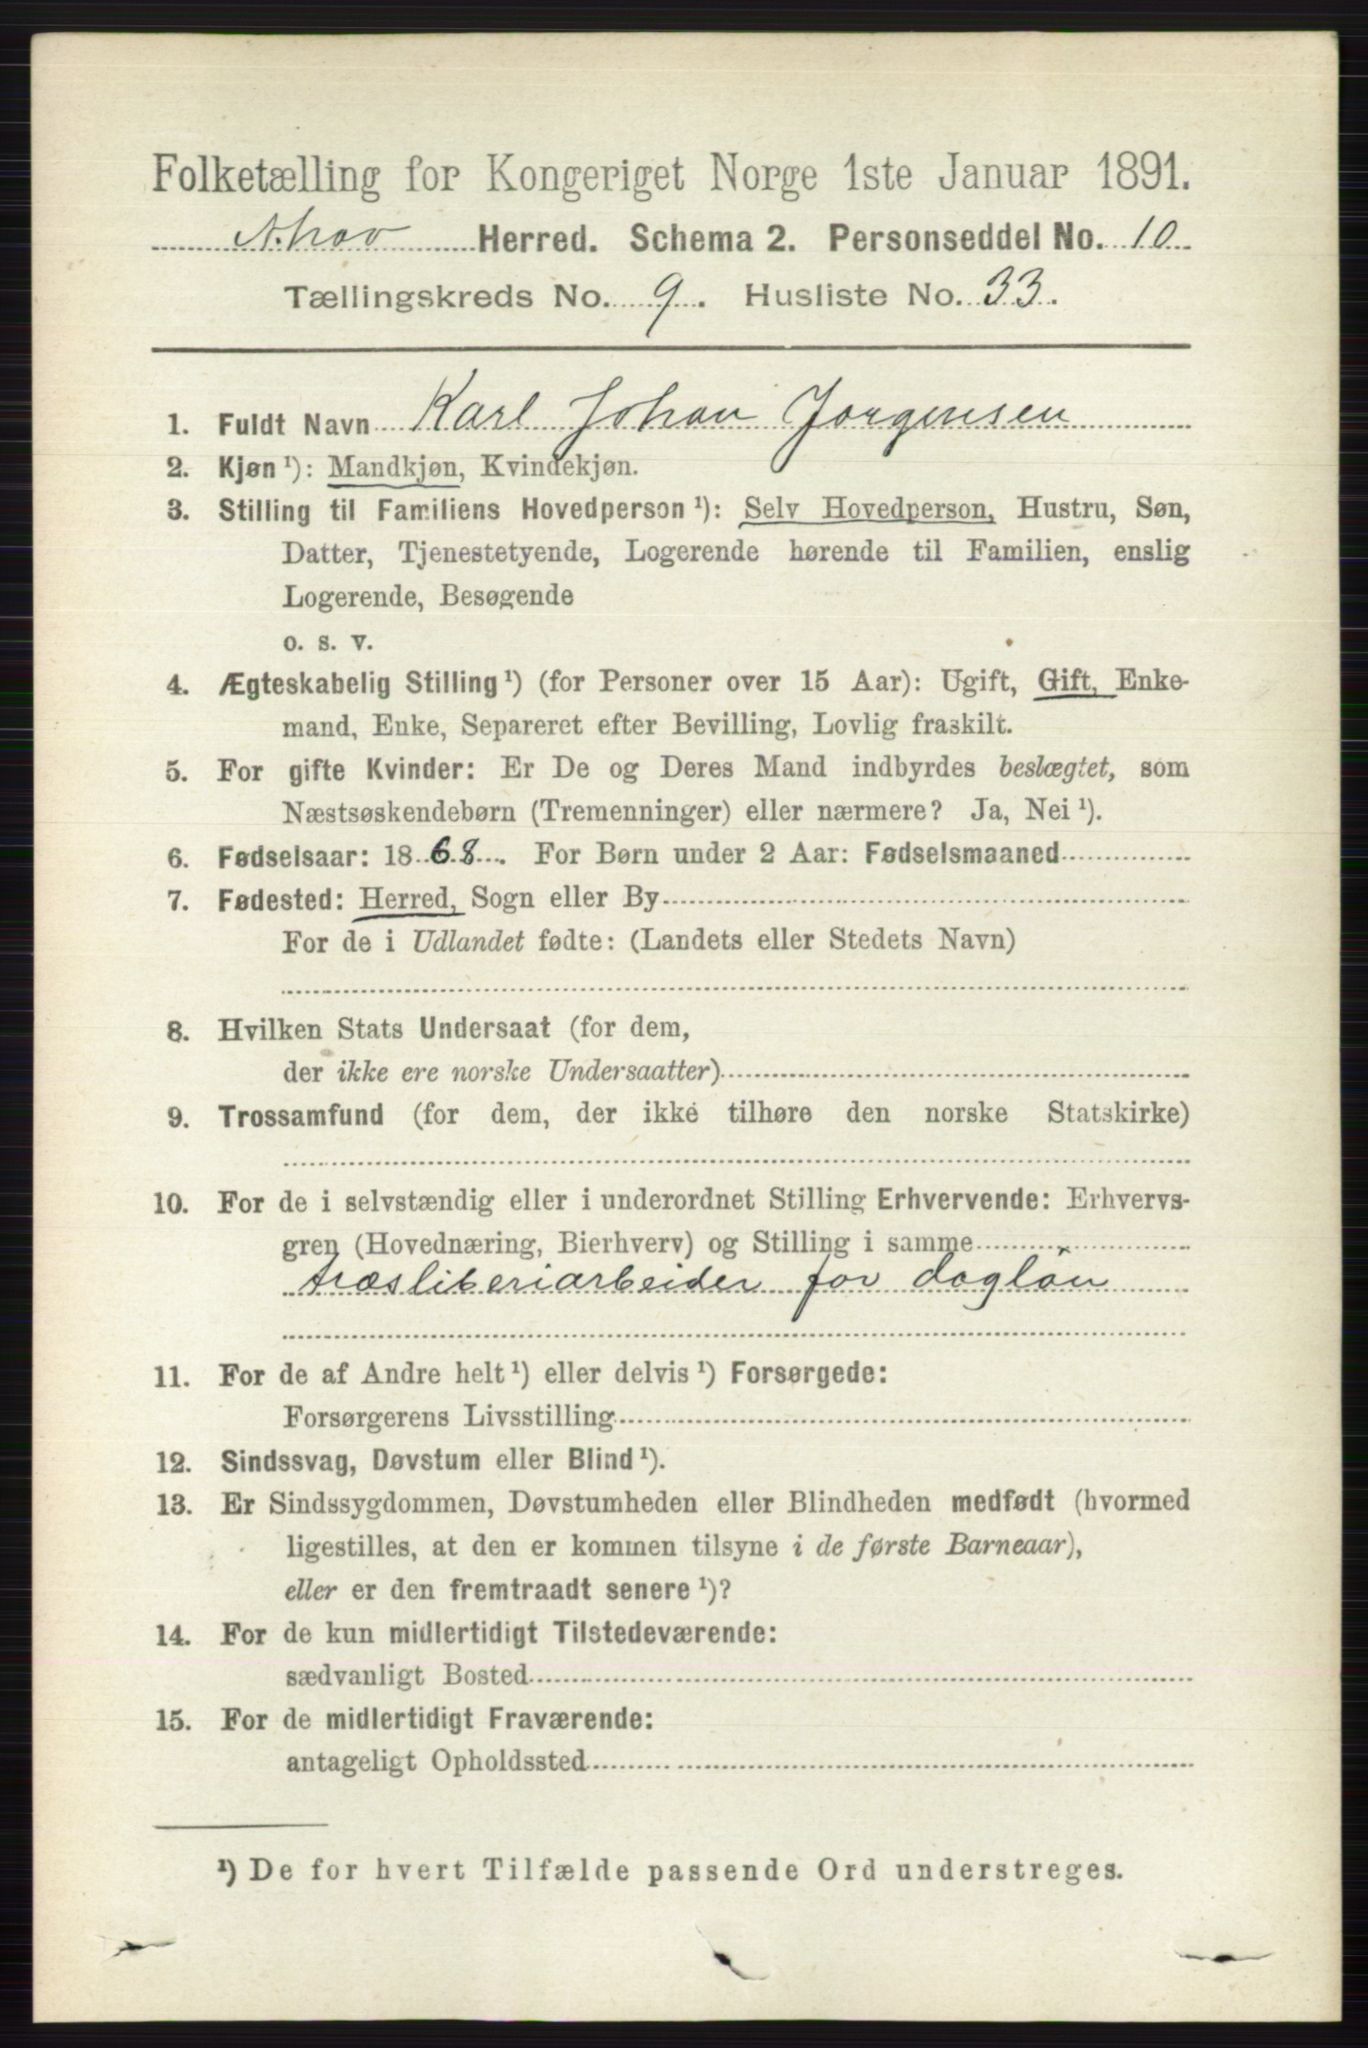 Folketælling for Kongeriget Norge 1ste Januar 1891.
Herred. Schema 2. Personseddel No. 10
Tællingskreds No. 9. Husliste No. 33.
1. Fuldt Navn Karl Johan Jorgensen
2. Kjøn ¹): Mandkjøn, Kvindekjøn.
3. Stilling til Familiens Hovedperson ¹): Selv Hovedperson, Hustru, Søn,
Datter, Tjenestetyende, Logerende hørende til Familien, enslig
Logerende, Besøgende
o. s. v.
4. Ægteskabelig Stilling ¹) (for Personer over 15 Aar): Ugift, Gift, Enke-
mand, Enke, Separeret efter Bevilling, Lovlig fraskilt.
5. For gifte Kvinder: Er De og Deres Mand indbyrdes beslægtet, som
Næstsøskendebørn (Tremenninger) eller nærmere? Ja, Nei ¹).
6. Fødselsaar: 1868. For Børn under 2 Aar: Fødselsmaaned
7. Fødested: Herred, Sogn eller By
For de i Udlandet fødte: (Landets eller Stedets Navn)
8. Hvilken Stats Undersaat (for dem,
der ikke ere norske Undersaatter)
9. Trossamfund (for dem, der ikke tilhøre den norske Statskirke)
10. For de i selvstændig eller i underordnet Stilling Erhvervende: Erhvervs-
gren (Hovednæring, Bierhverv) og Stilling i samme
træsliberiarbeider for daglön
11. For de af Andre helt ¹) eller delvis ¹) Forsørgede:
Forsørgerens Livsstilling
12. Sindssvag, Døvstum eller Blind ¹).
13. Er Sindssygdommen, Døvstumheden eller Blindheden medfødt (hvormed
ligestilles, at den er kommen tilsyne i de første Barneaar),
eller er den fremtraadt senere ¹)?
14. For de kun midlertidigt Tilstedeværende:
sædvanligt Bosted
15. For de midlertidigt Fraværende:
antageligt Opholdssted
¹) De for hvert Tilfælde passende Ord understreges.